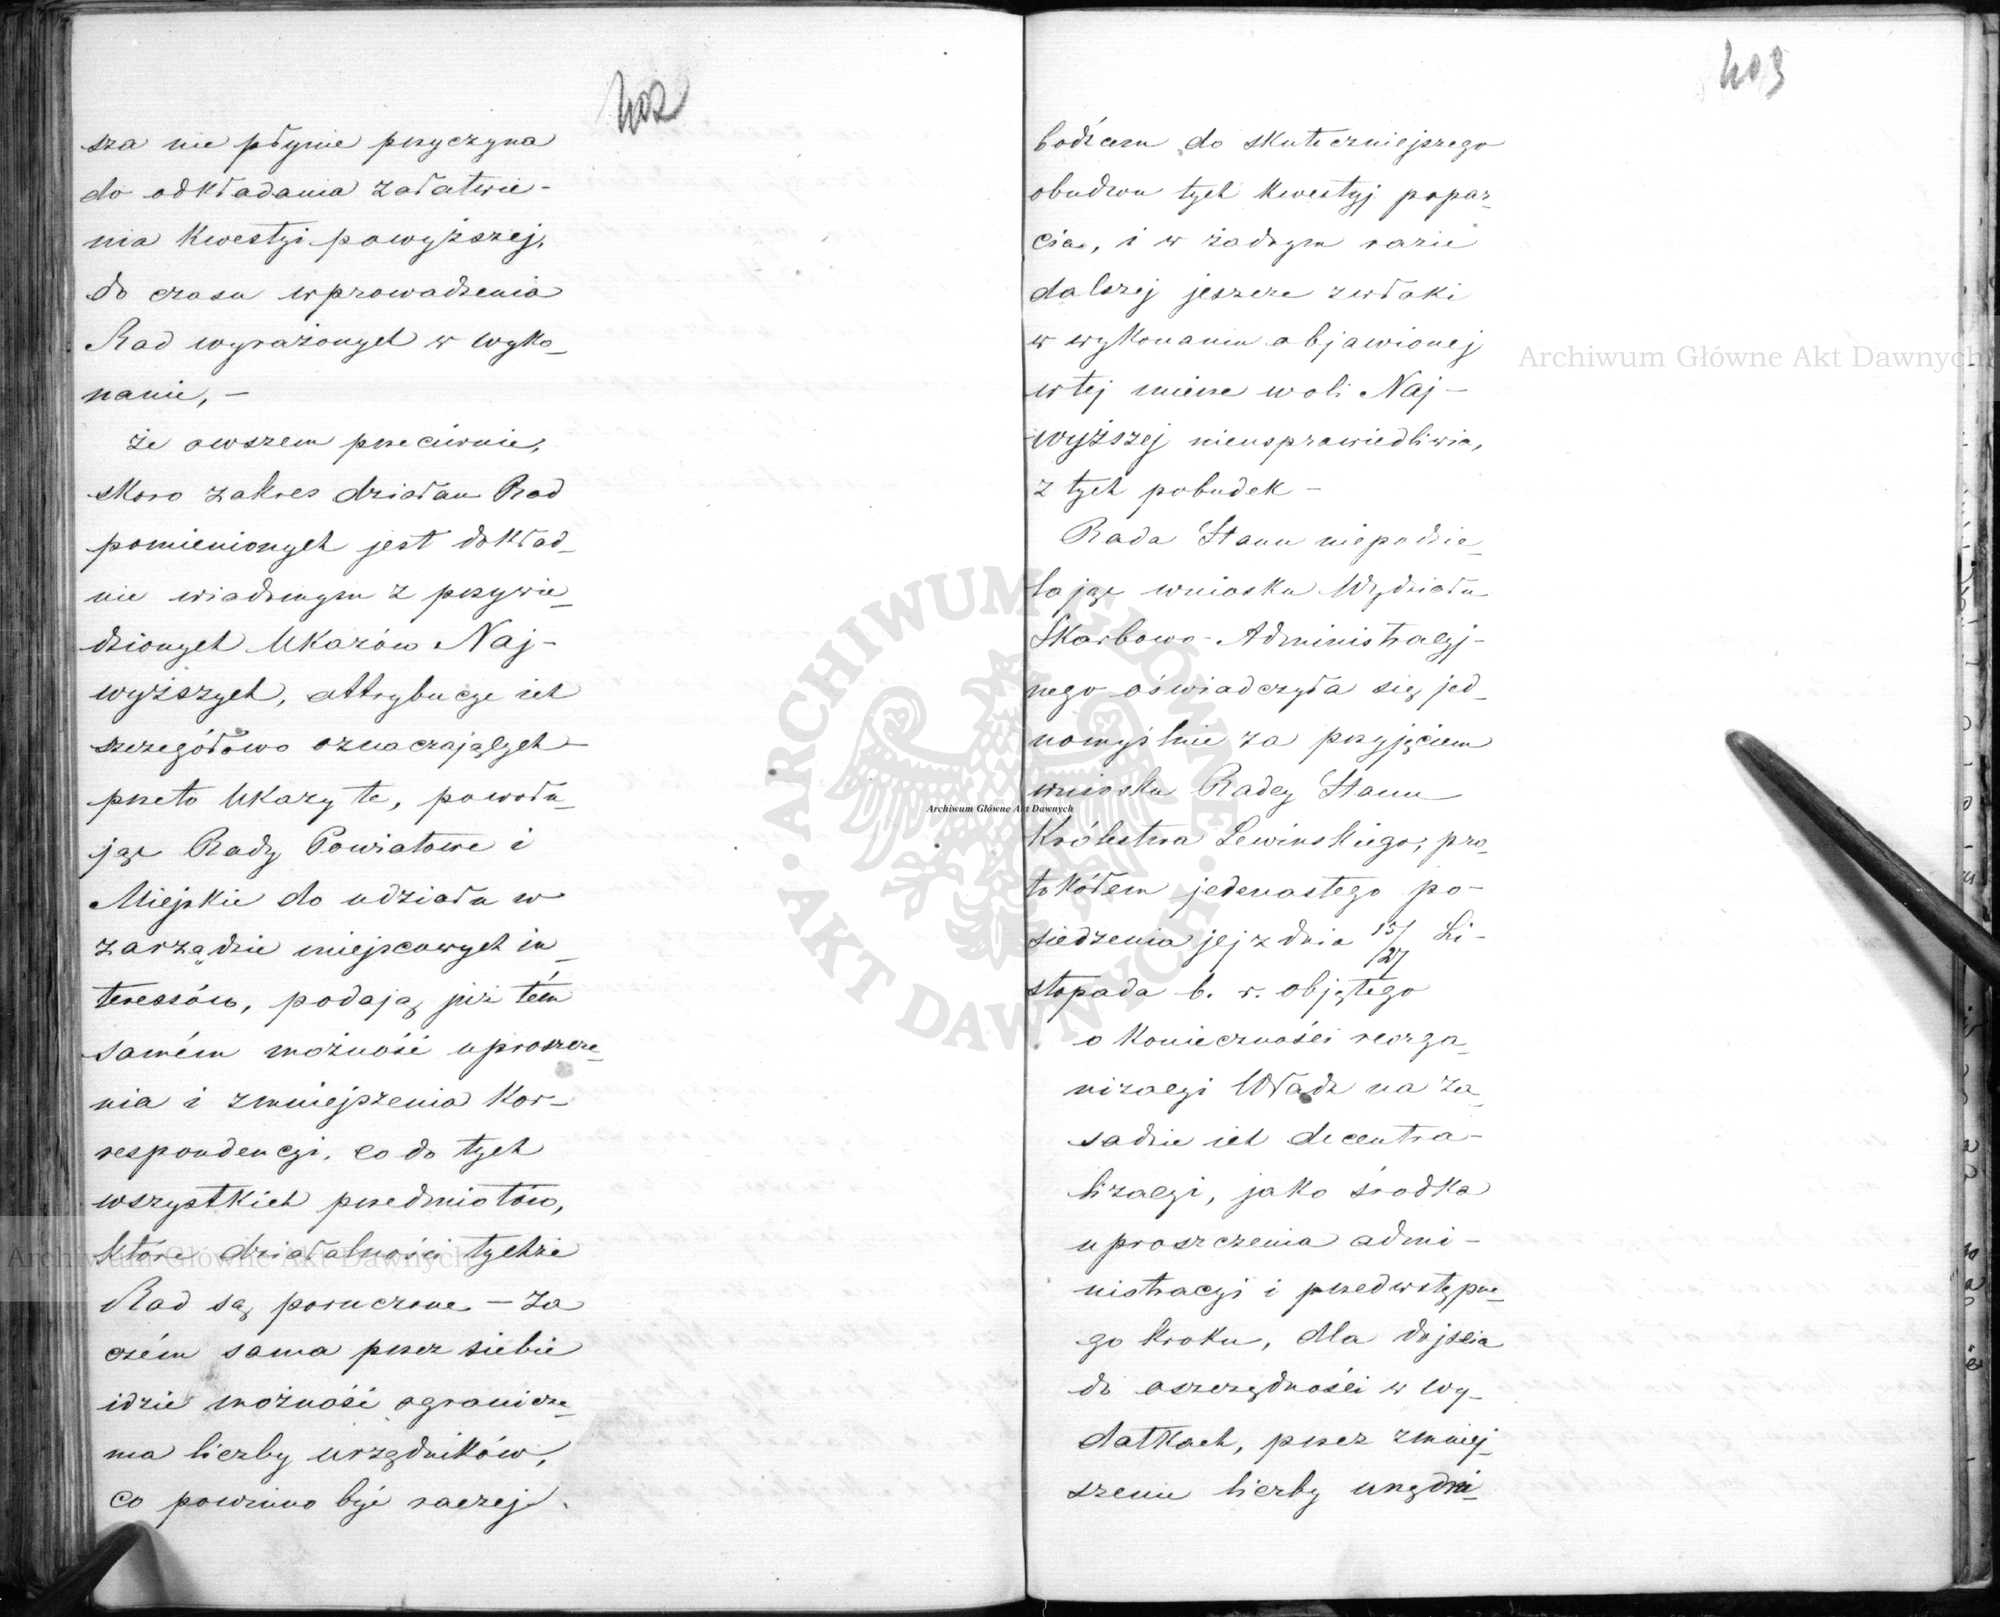 402
sza nie płynie przyczyna
do odkładania załatwie-
nia kwestyi powyższej,
do czasu wprowadzenia
Rad wyrażonych w wyko_
nanie, -
że owszem przeciwnie,
skoro zakres działań Rad
pomienionych jest dokład_
nie wiadomym z przywie_
dzionych Ukazów Naj-
wyższych, attrybucye ich
szczegółowo oznaczających
przeto Ukazy te, powołu_
jąc Rady Powiatowe i
Miejskie do udziału w
zarządzie miejscowych in_
teressów, podają już tém
samém możność uproszcze_
nia i zmniejszenia kor-
respondencyi, co do tych
wszystkich przedmiotów,
które działalności tychże
Rad są poruczone - za
czém sama przez siebie
idzie możność ogranicze_
nia liczby urzędników,
co powinno być raczej
403
bodźcem do skuteczniejszego
obudwu tych kwestyj popar_
cia, i w żadnym razie
dalszej jeszcze zwłoki
w wykonaniu objawionej
w tej mierze woli Naj-
wyższej nieusprawiedliwia,
z tych pobudek -
Rada Stanu niepodzie_
lając wniosku Wydziału
Skarbowo-Administracyj-
nego oświadczyła się jed_
nomyślnie za przyjęciem
wniosku Radcy Stanu
Królestwa Lewińskiego, pro_
tokółem jedenastego po-
siedzenia jej z dnia 15/27 Li-
stopada b. r. objętego
o konieczności reorga_
nizacyi Władz na za_
sadzie ich decentra-
lizacyi, jako środka
uproszczenia admi-
nistracyi i przedwstępne_
go kroku, dla dojścia
do oszczędności w wy_
datkach, przez zmniej_
szenie liczby urzędni_
Archiwum Główne Akt Dawnych
Archiwum Główne Akt Dawnych
Archiwum Główne Akt Dawnych
ARCHIWUM GŁÓWNE · AKT DAWNYCH ·